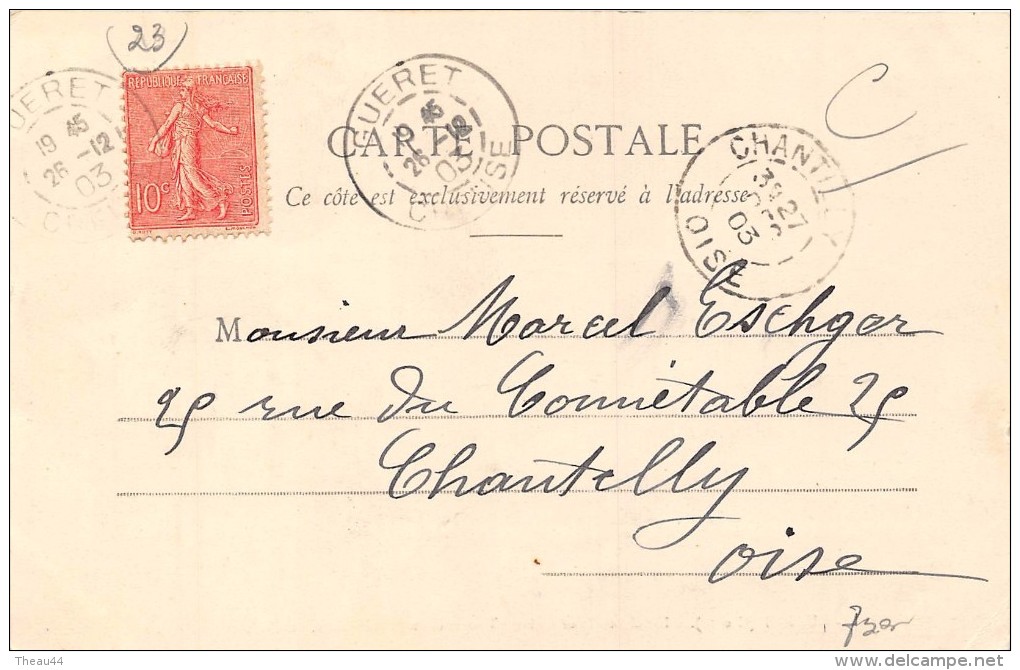 23
RÉPUBLIQUE FRANÇAISE
10c
POSTES
GUERET
19 45
26 -12
03
GUERET
19 45
26 -12
03
CREUSE
CARTE POSTALE
Ce côté est exclusivement réservé à l'adresse
CHANTILLY
27
03
OISE
Monsieur Marcel Eschger
25 rue du Connétable 25
Chantilly
Oise
Theau44
delcampe.net